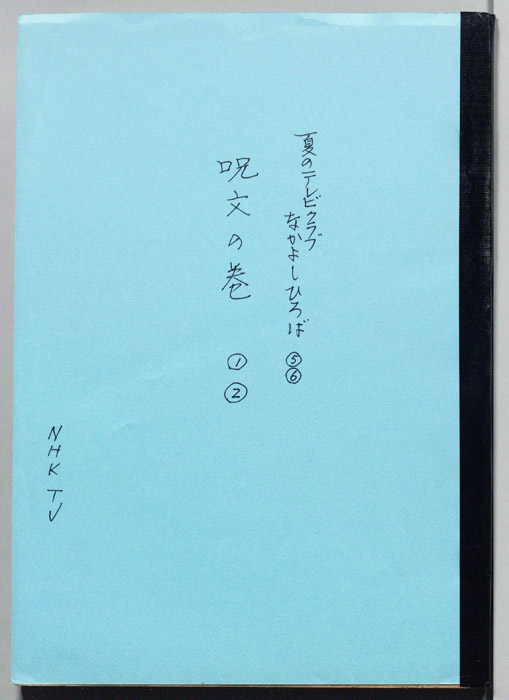 夏のテレビクラブ
なかよしひろば ⑤⑥
呪文の巻 ① ②
NHK TV